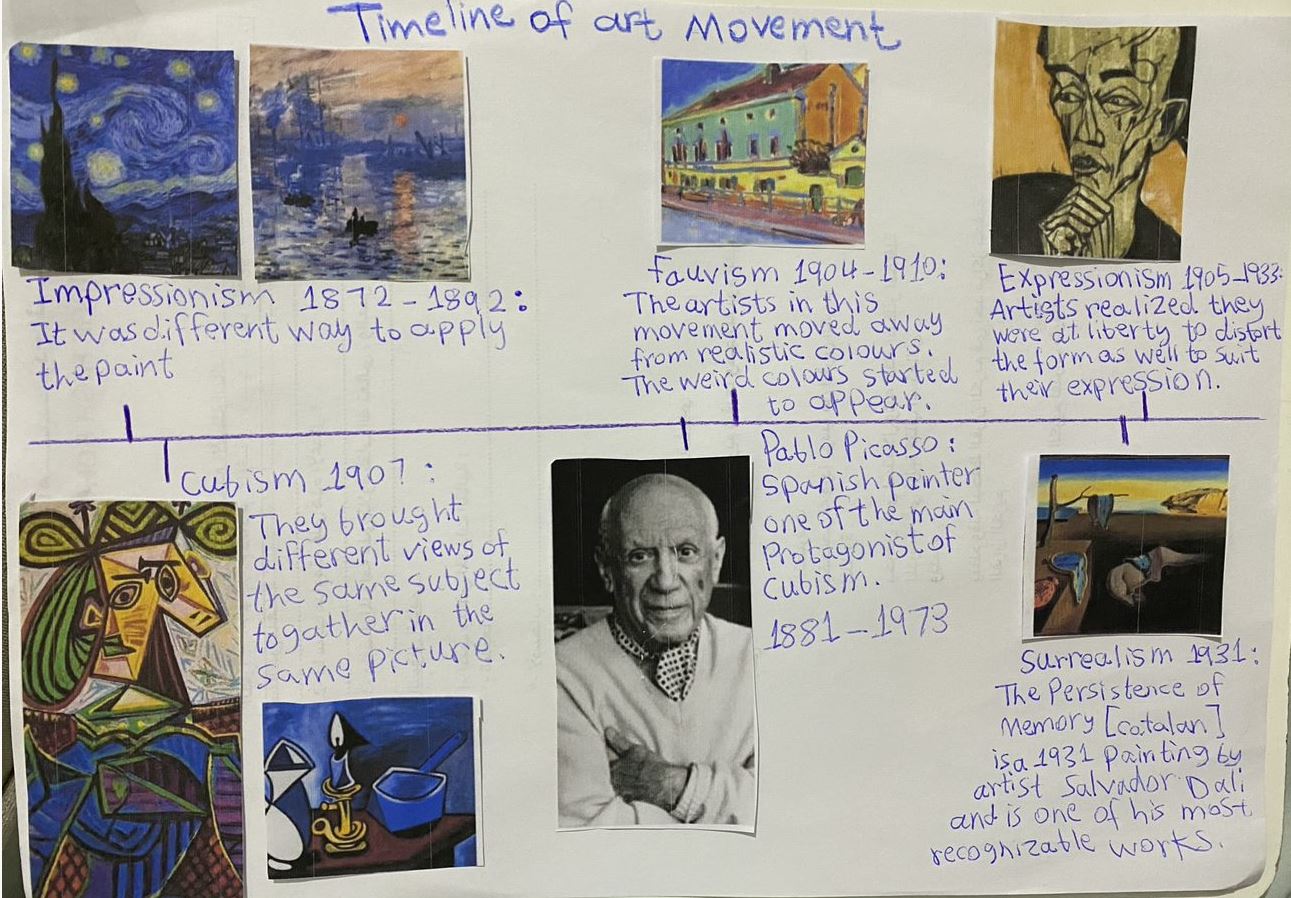 Timeline of art Movement
Impressionism 1872-1892:
It was different way to apply
the paint
fauvism 1904-1910:
The artists in this
movement moved away
from realistic colours.
The weird colours started
to appear.
Expressionism 1905-1933:
Artists realized they
were at liberty to distort
the form as well to suit
their expression.
Cubism 1907:
They brought
different views of
the same subject
togather in the
same picture.
Pablo Picasso:
Spanish painter
one of the main
Protagonist of
Cubism.
1881-1973
Surrealism 1931:
The Persistence of
Memory [catalan]
is a 1931 painting by
artist Salvador Dali
and is one of his most
recognizable works.